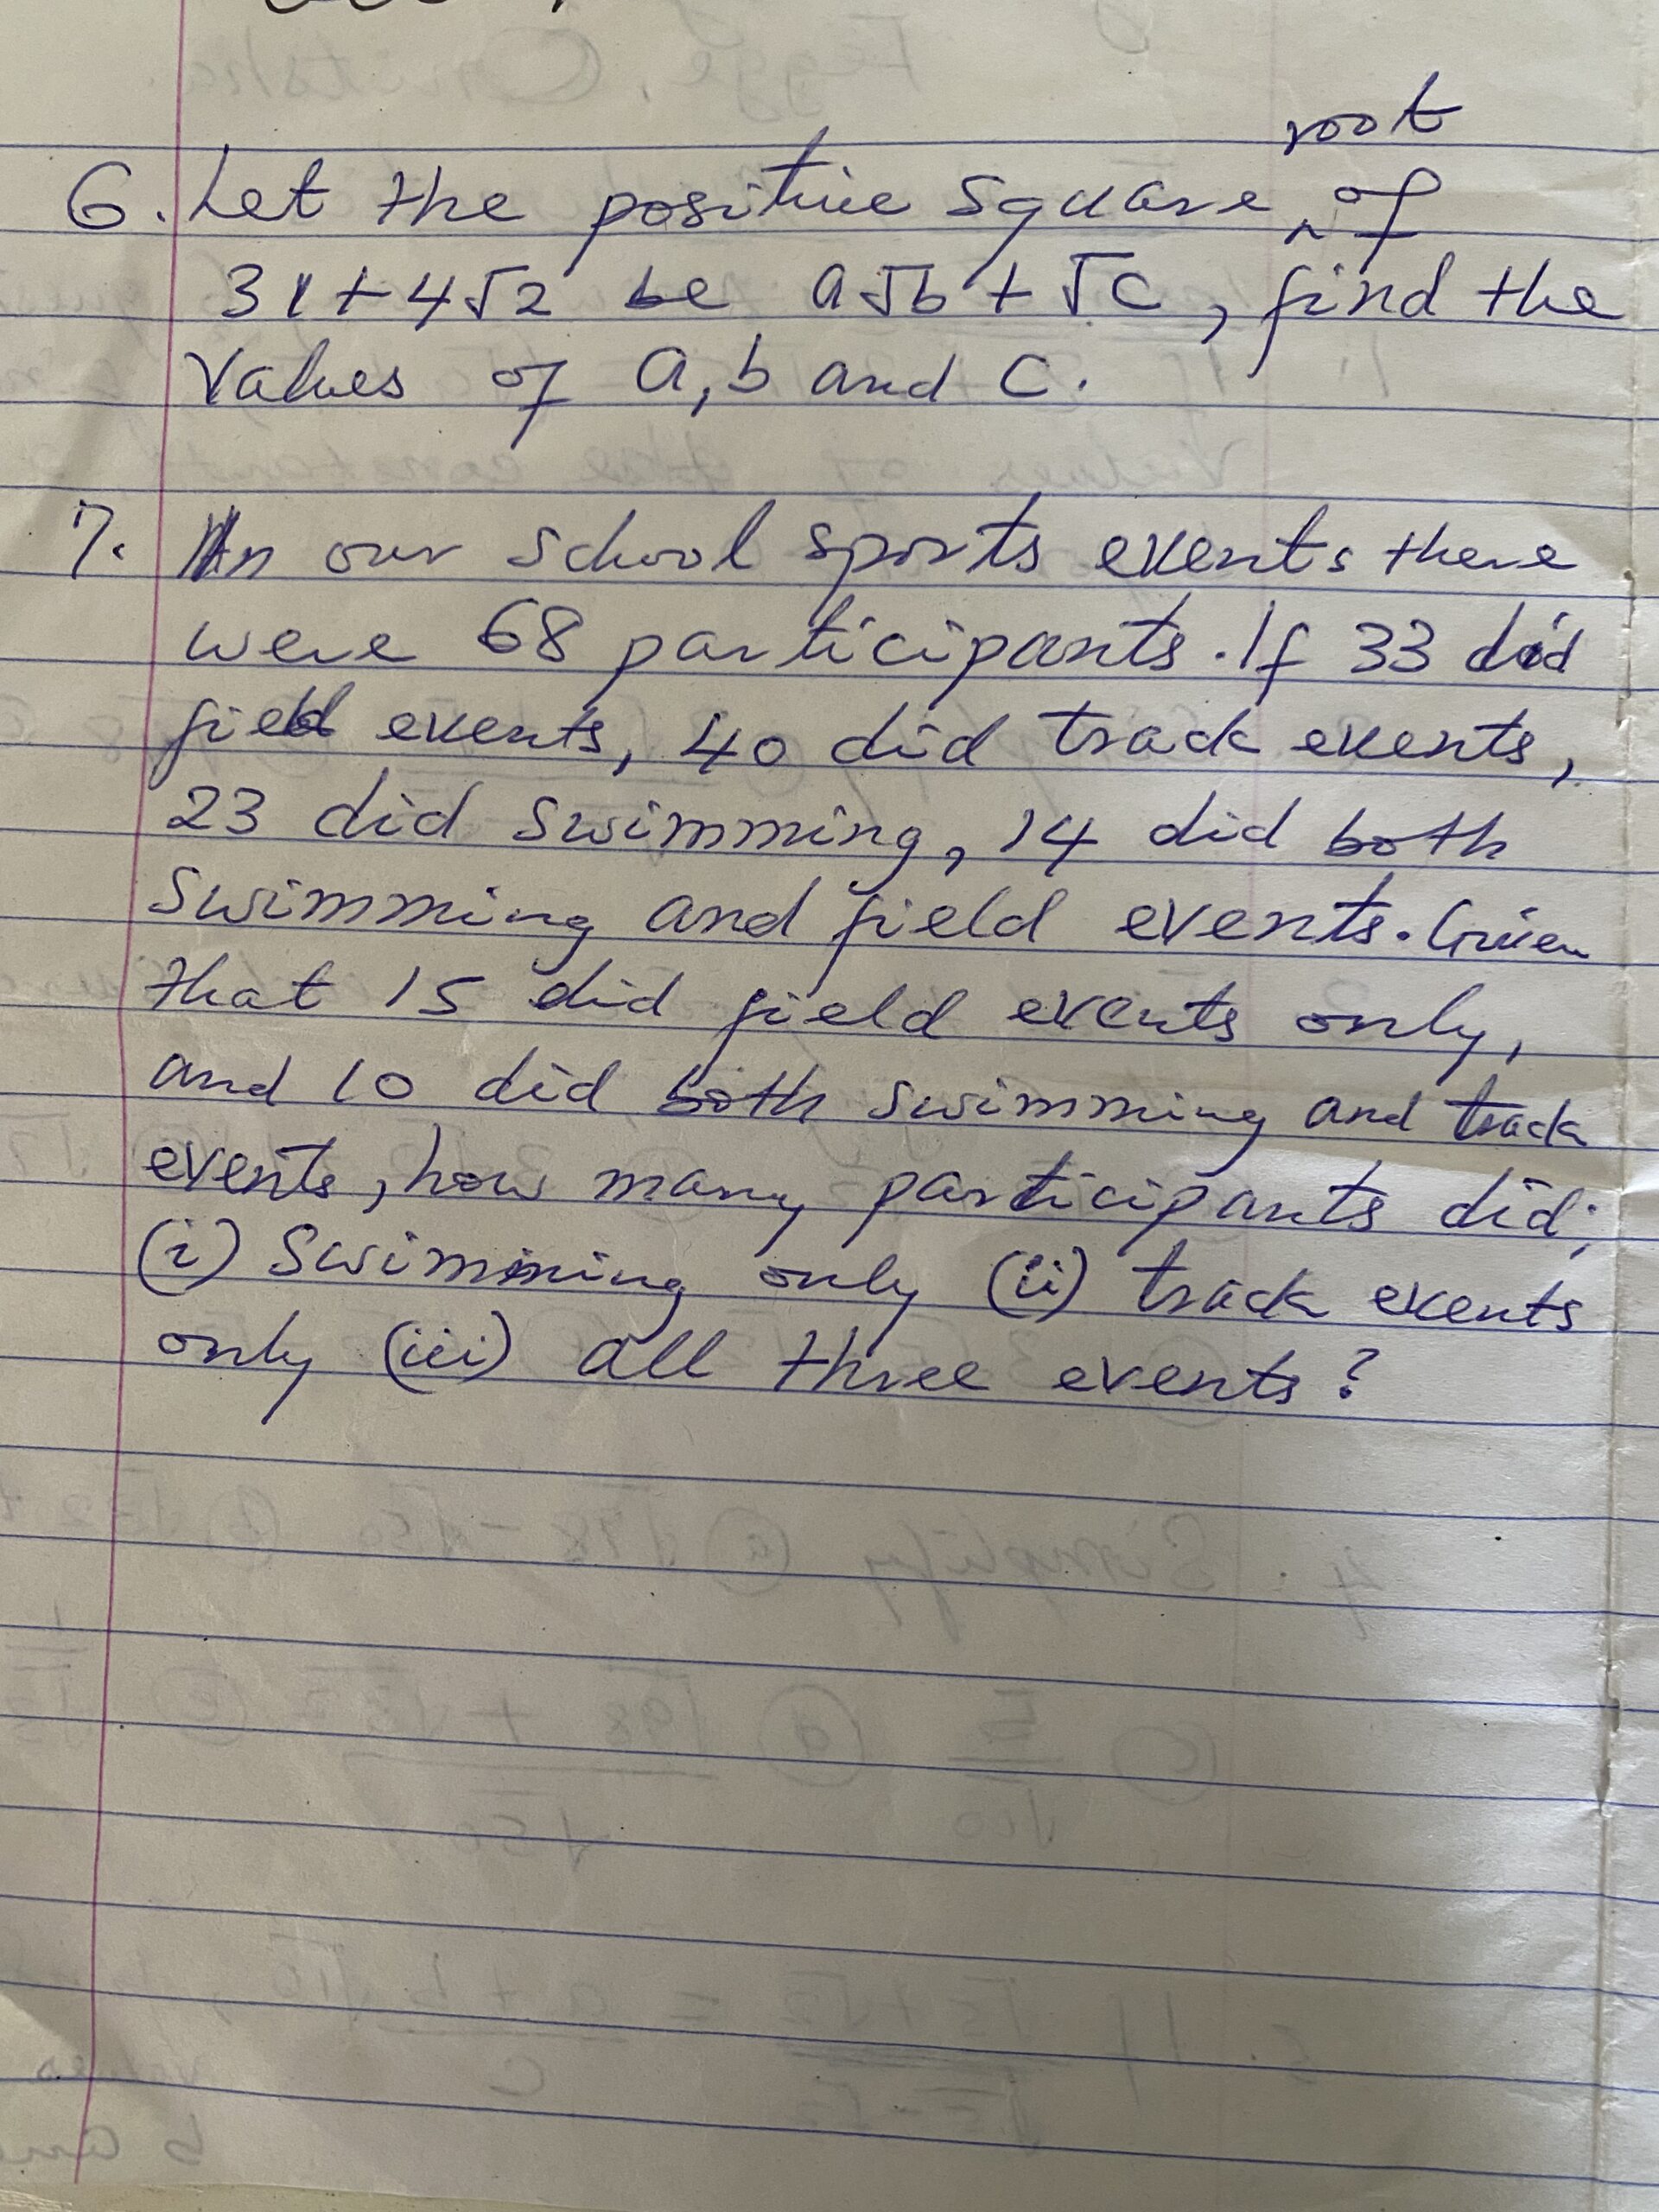 root
6. Let the positive square ^ of
31+4√2 be a√b + √c, find the
Values of a, b and c.
7. In our school sports events there
were 68 participants. If 33 did
field events, 40 did track events,
23 did swimming, 14 did both
swimming and field events. Given
that 15 did field events only,
and 10 did both swimming and track
events, how many participants did;
(i) Swimming only (ii) track events
only (iii) all three events?